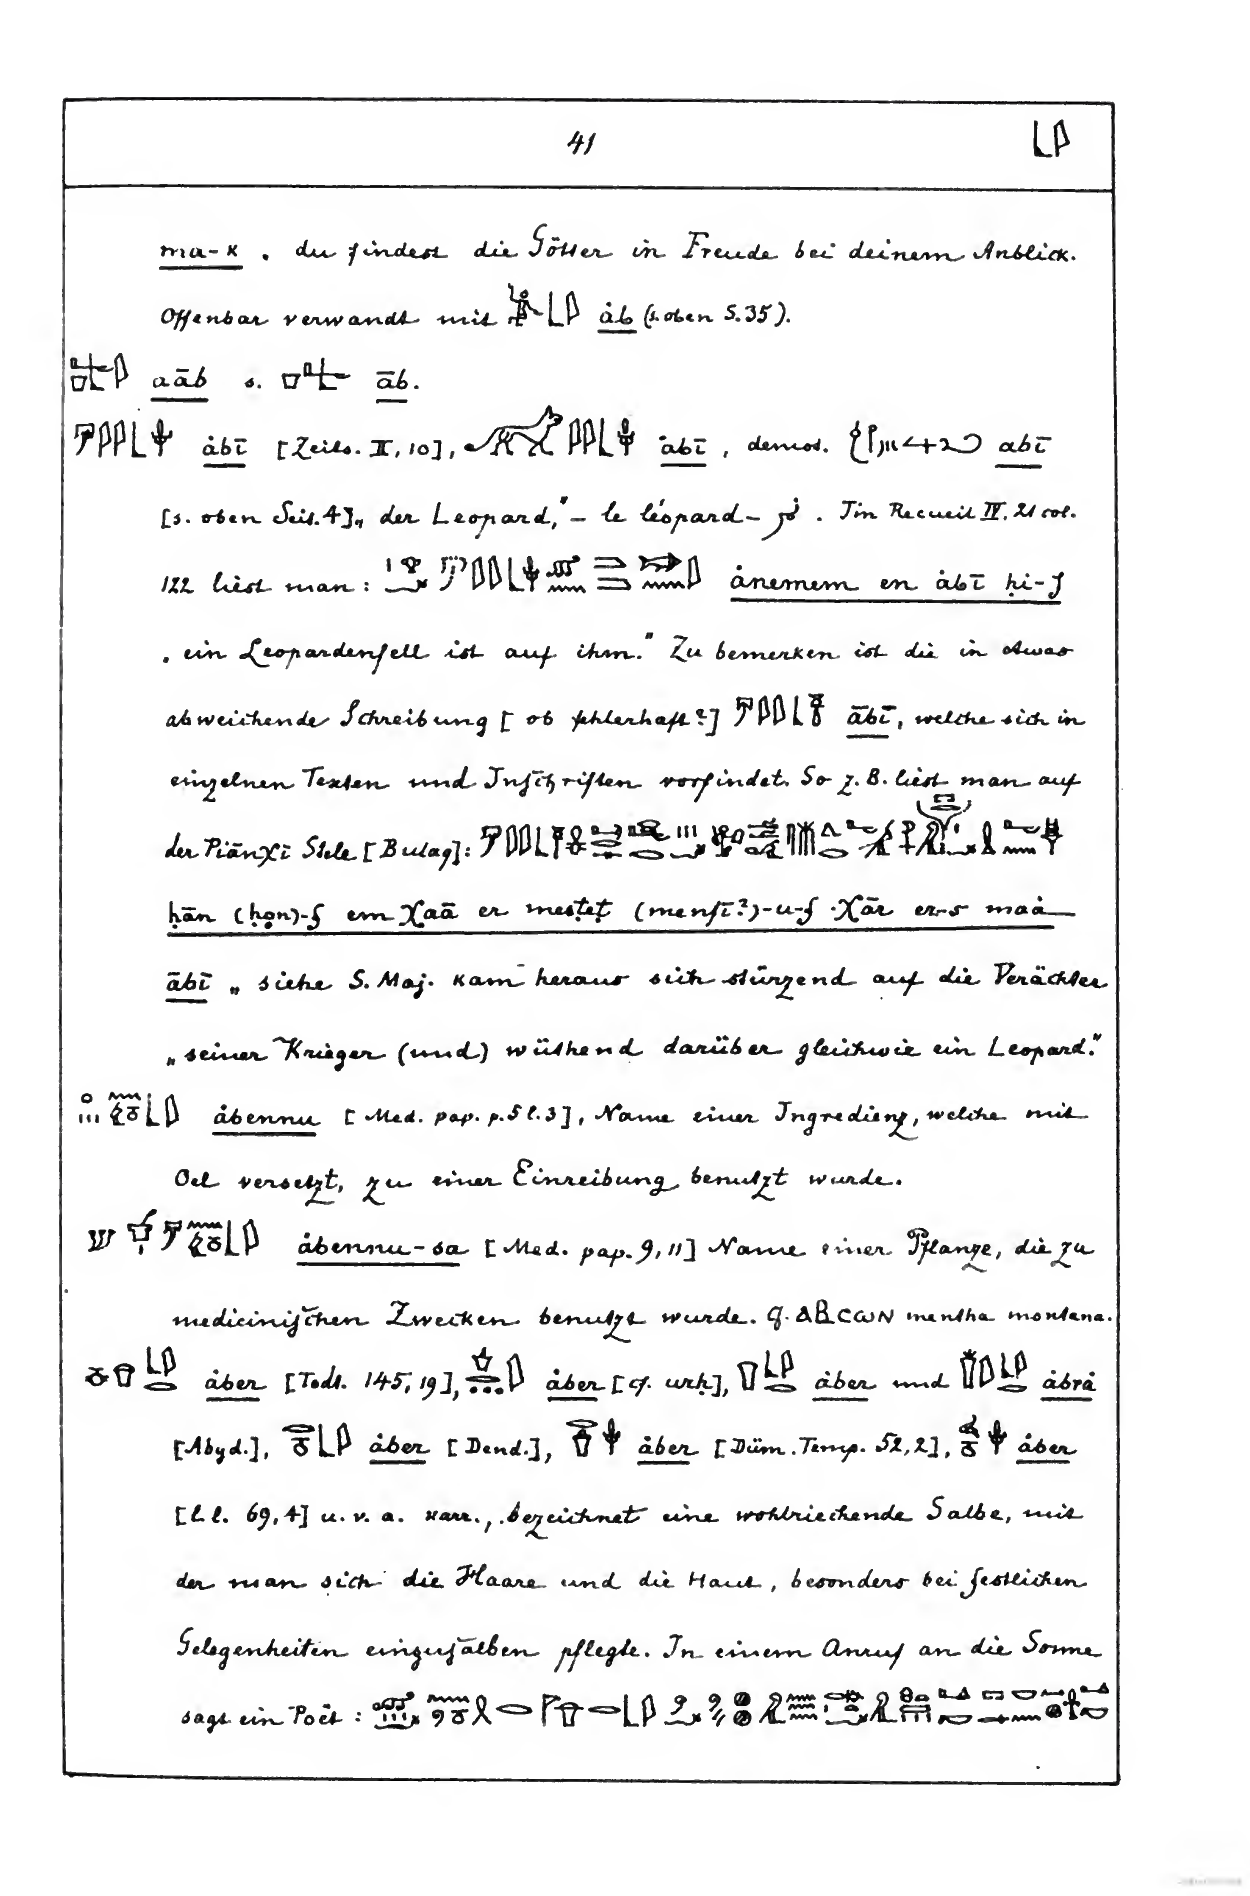 41 𓃀𓇋
ma-k „ du findest die Götter in Freude bei deinem Anblick.
Offenbar verwandt mit ȧb (s. oben S. 35).
aāb s. āb.
ȧbī [Zeits. II, 10], ȧbī, demot. abī
[s. oben Seit. 4] „der Leopard," – le léopard – فهد. Im Recueil IV, 21 col.
122 liest man: ȧnemem en ȧbī ḥi-f
„ein Leopardenfell ist auf ihm." Zu bemerken ist die in etwas
abweichende Schreibung [ob fehlerhaft?] ābī, welche sich in
einzelnen Texten und Inschriften vorfindet. So z. B. liest man auf
der Piānχī Stele [Bulaq]:
ḥān (ḥọn)-f em χaā er mesṭeṭ (menfī?)-u-f · χār er-s maȧ
ābī „siehe S. Maj. kam heraus sich stürzend auf die Verächter
„seiner Krieger (und) wüthend darüber gleichwie ein Leopard."
ȧbennu [Med. pap. p. 5 l. 3], Name einer Ingredienz, welche mit
Oel versetzt, zu einer Einreibung benutzt wurde.
ȧbennu-sa [Med. pap. 9, 11] Name einer Pflanze, die zu
medicinischen Zwecken benutzt wurde. Cf. ⲁⲃⲥⲱⲛ mentha montana.
ȧber [Todt. 145, 19], ȧber [cf. urḥ], ȧber und ȧbrȧ
[Abyd.], ȧber [Dend.], ȧber [Düm. Temp. 52, 2], ȧber
[l. l. 69, 4] u. v. a. varr., bezeichnet eine wohlriechende Salbe, mit
der man sich die Haare und die Haut, besonders bei festlichen
Gelegenheiten einzusalben pflegte. In einem Anruf an die Sonne
sagt ein Poët: